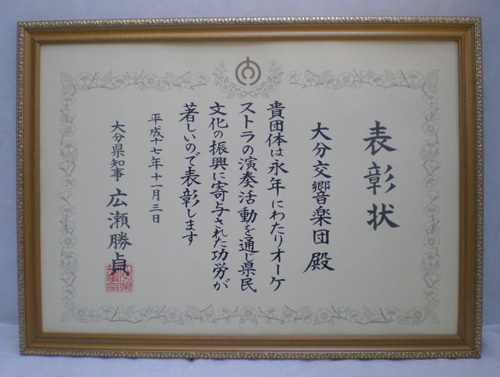 表彰状
大分交響音楽団 殿
貴団体は永年にわたりオーケ
ストラの演奏活動を通じ県民
文化の振興に寄与された功労が
著しいので表彰します
平成十七年十一月三日
大分県知事 広瀬勝貞